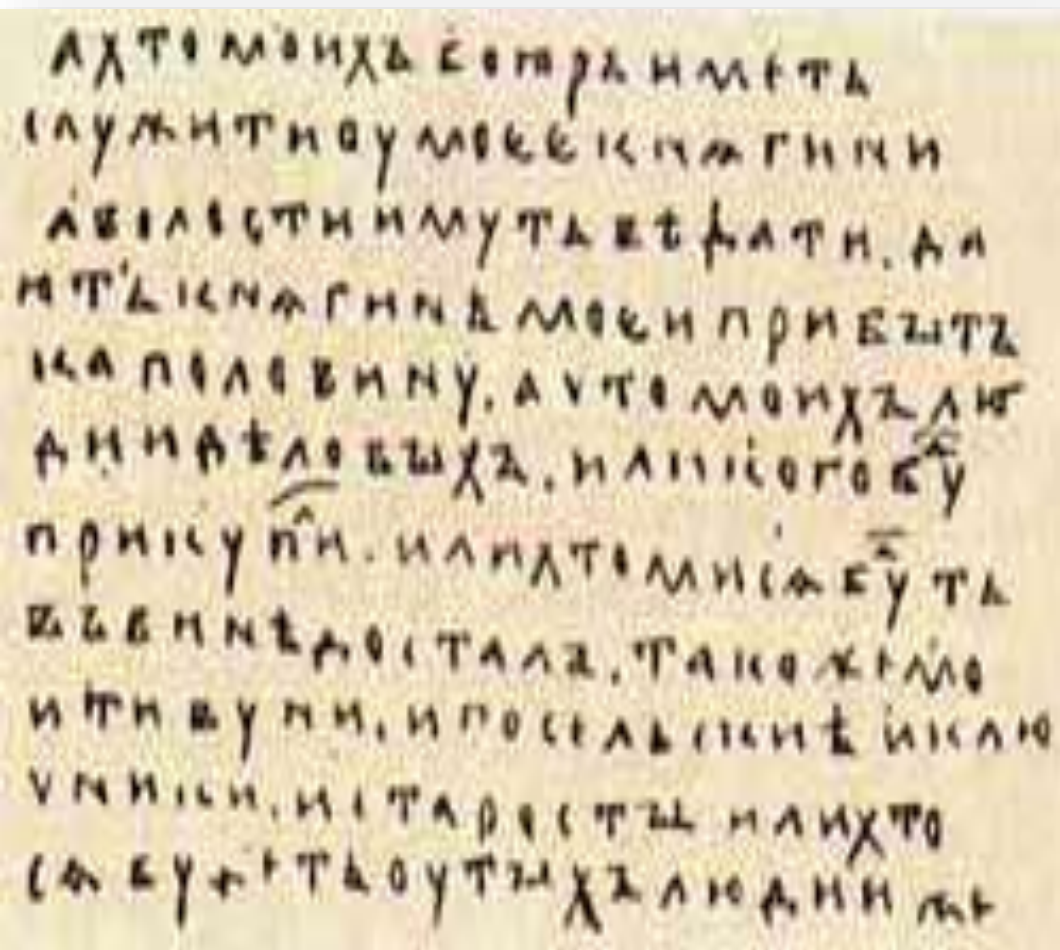 А ХТО МОИХЪ БОꙖРЪ ИМЕТЬ
СЛУЖИТИ ОУ МОЕЕ КНѦГИНИ
А ВОЛОСТИ ИМУТЬ ВѢДАТИ. ДА
ИТЬ КНѦГИНѢ МОЕИ ПРИБЫТЪ
КА ПОЛОВИНУ. А ЧТО МОИХЪ ЛЮ
ДИИ ДѢЛОВЫХЪ. ИЛИ КОГО БУ
ПРИКУПИ. ИЛИ ХТО МИ СѦ БУТЬ
ВЪ ВИНѢ ДОСТАЛЪ. ТАКОЖЕ МО
И ТИВУНИ. И ПОСЕЛЬСКИѢ И КЛЮ
ЧНИКИ. И СТАРОСТЫ ИЛИ ХТО
СѦ БУДЕТЬ ОУ ТЫХЪ ЛЮДИИ ЖЕ